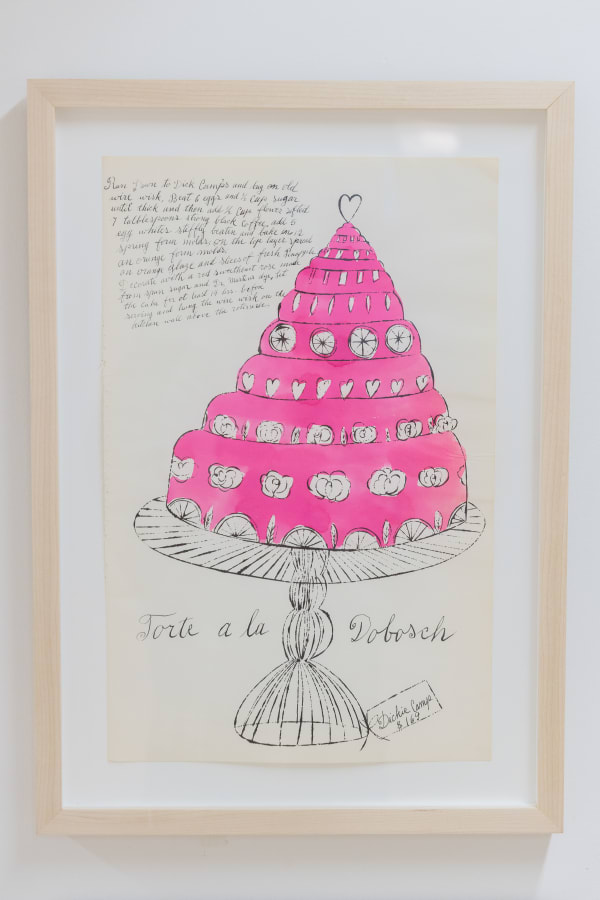 Run Down to Dick Camps and lug an old
wire wisk, Beat 6 eggs and ½ Cups sugar
until thick and then add ¾ Cup flower sifted
7 tabblespoons strong black Coffee, add 6
egg whites stiffly beaten and bake in 12
spring form molds. on the top layer spread
an orange form molds
on orange glaze and slices of fresh
with a red sweetheart rose made
from spun sugar and let
the cake for at least 14 hrs. before
serving and hang the wire wisk on the
kitchen wall above the rotisserie.
Torte a la Dobosch
Dickie Camp
$ 167